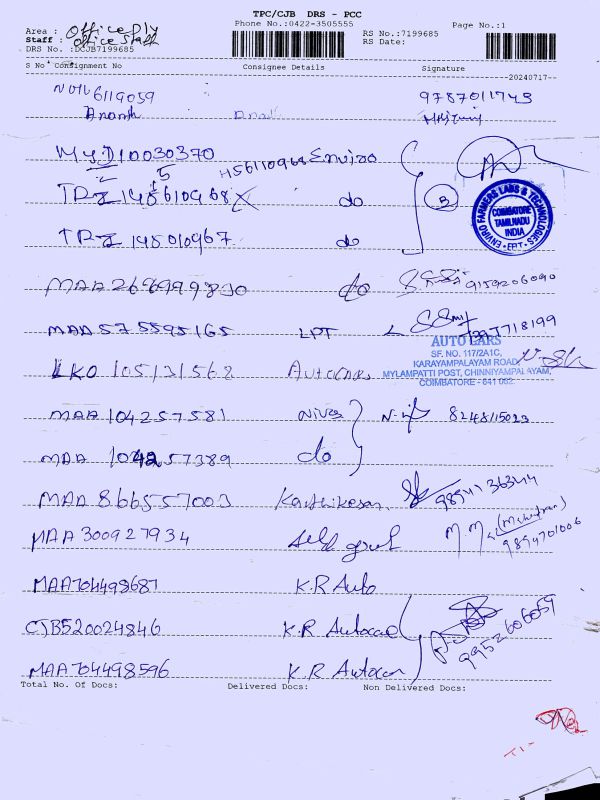 TPC/CJB DRS - PCC
Phone No.:0422-3505555
Page No.:1
Area : Office Ply
Staff : Office Staff
DRS No. :DCJB7199685
RS No.:7199685
RS Date:
S No Consignment No Consignee Details Signature
20240717
6119059 9787011743
Ananth
MYD10030370 H56110968 Enviro
TPZ 148610968 X do
5
B
TPZ 148010967 do
ENVIRO FARMERS LABS & TECHNOLOGIES
COIMBATORE
TAMILNADU
INDIA
MAA 2689999830 do 9159206090
MAA 575595165 LPT
AUTO CARS
SF. NO. 117/2A1C,
KARAYAMPALAYAM ROAD,
MYLAMPATTI POST, CHINNIYAMPALAYAM,
COIMBATORE - 641 062.
LKO 105131568 Autocars
MAA 104257581 Nives 8248115023
MAA 104257389 do
MAA 866557003 Karthikesan 9894136344
MAA 300927934 9894701006
MAA704498687 K.R Auto
CJB520024846 K.R Autocar 9952606059
MAA704498596 K.R Autocar
Total No. Of Docs: Delivered Docs: Non Delivered Docs: